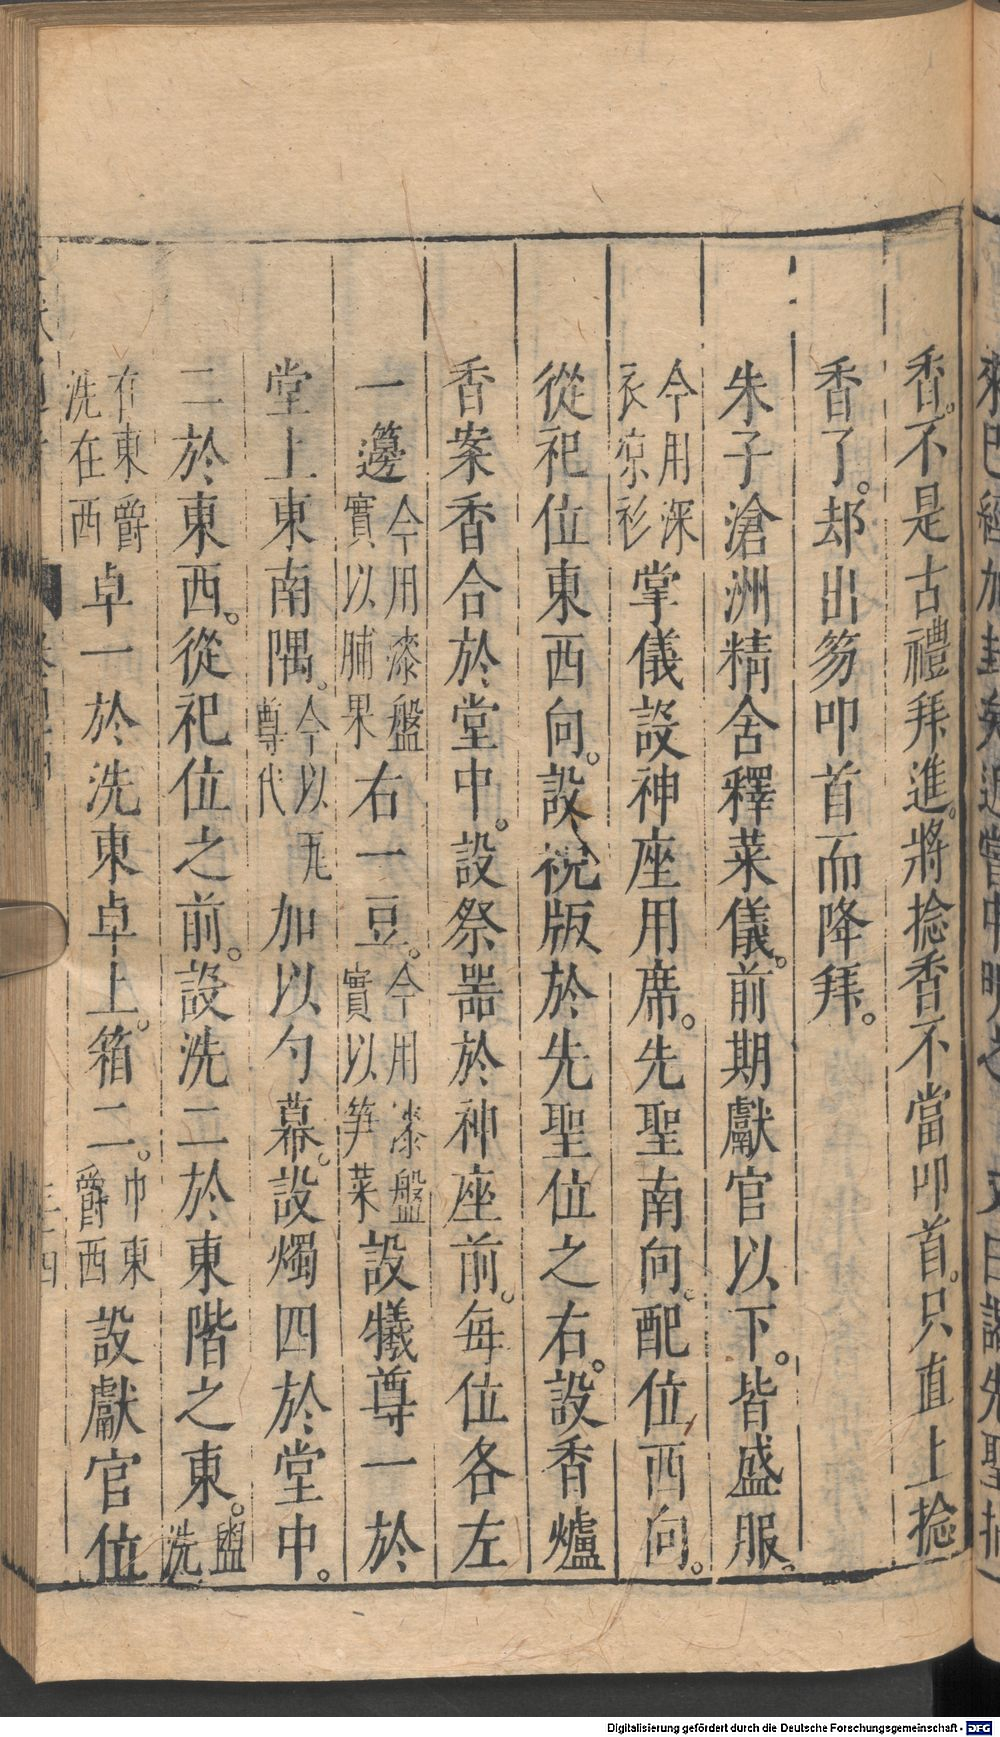 香。不是古禮拜進。將捻香不當叩首。只直上捻
香了。却出笏叩首而降拜。
朱子滄洲精舍釋菜儀。前期獻官以下。皆盛服。
今用深衣涼衫掌儀設神座用席。先聖南向。配位西向。
從祀位東西向。設祝版於先聖位之右。設香爐
香案香合於堂中。設祭器於神座前。每位各左
一籩今用漆盤實以脯果右一豆。今用漆盤實以笋菜設犧尊一於
堂上東南隅。今以瓦尊代加以勺幕。設燭四於堂中。
二於東西。從祀位之前。設洗二於東階之東。盥洗
在東爵洗在西卓一於洗東卓上。箱二。巾東爵西設獻官位
Digitalisierung gefördert durch die Deutsche Forschungsgemeinschaft - DFG